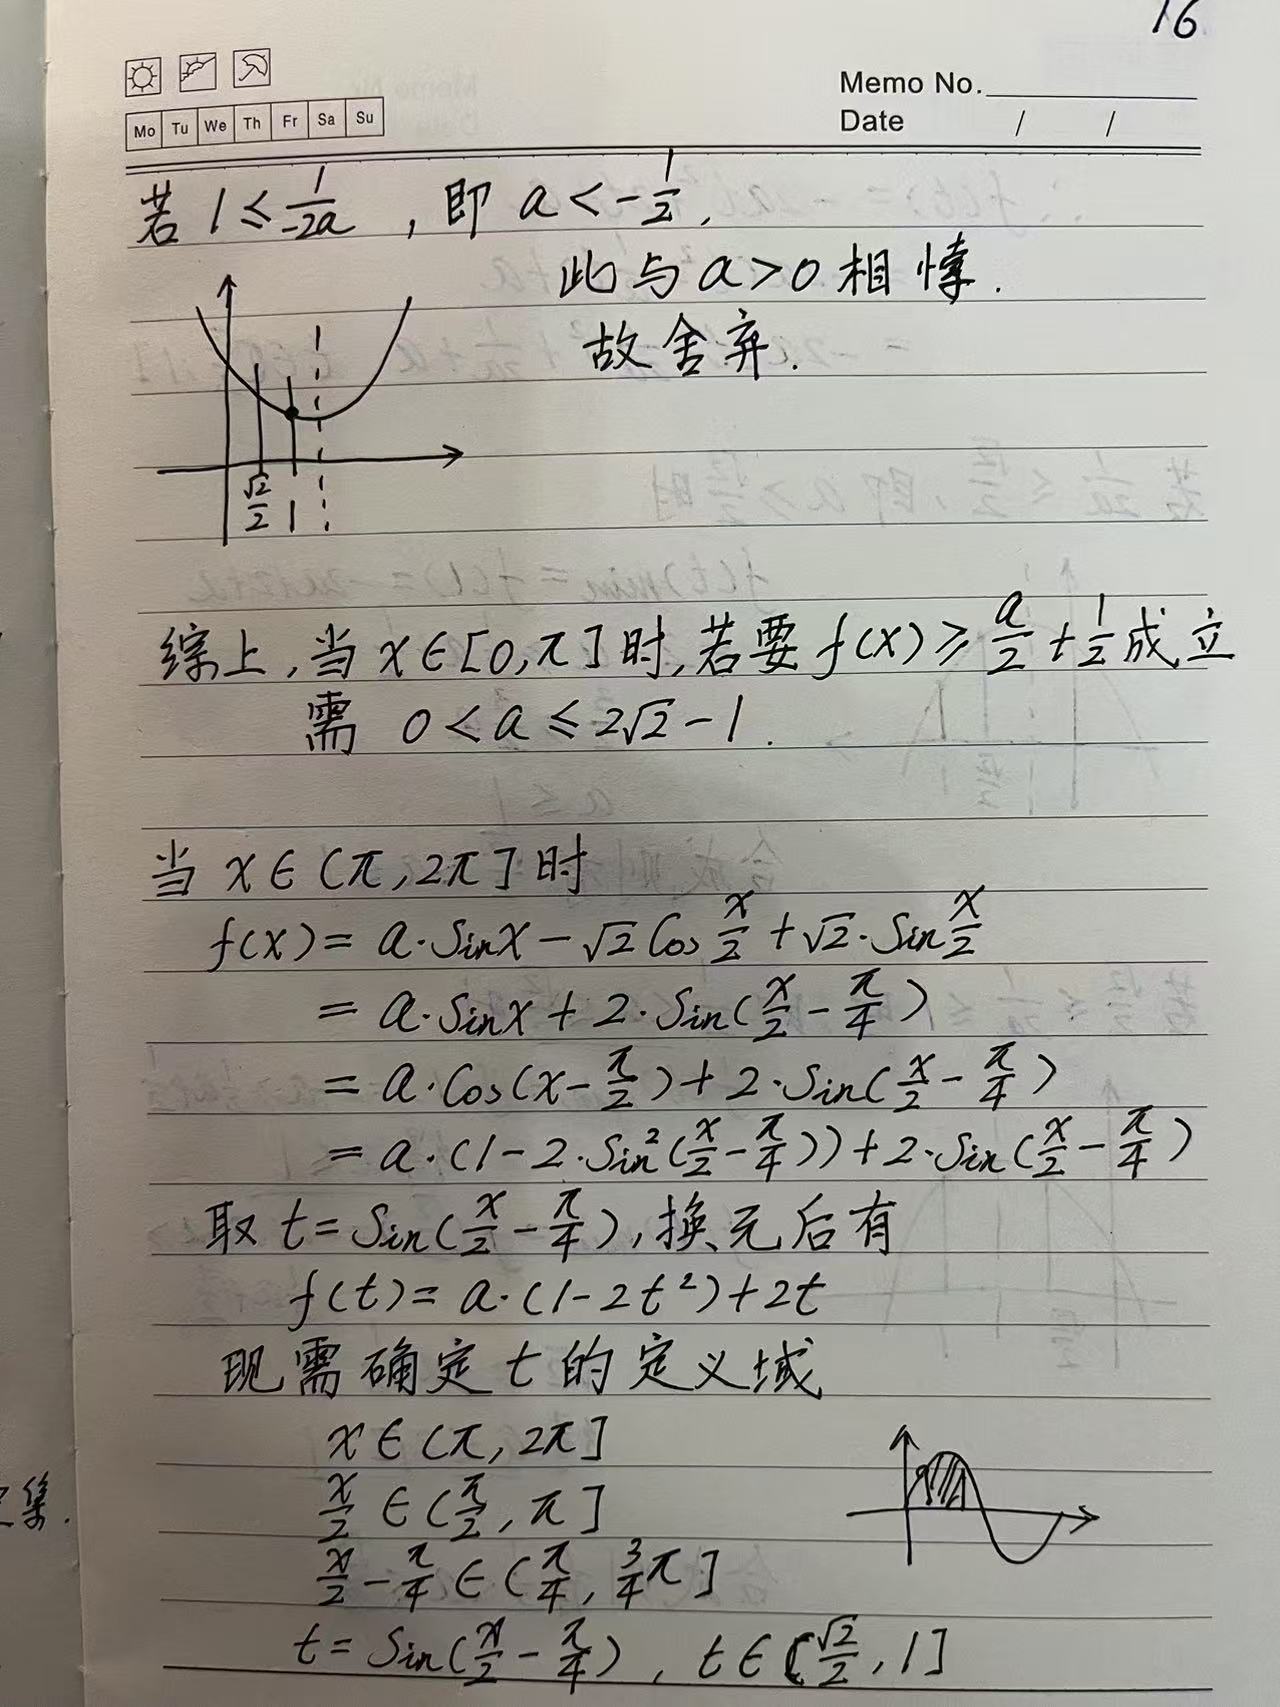 16
Memo No.
Mo Tu We Th Fr Sa Su
Date / /
若 1 ≤ 1/(-2a) ，即 a < -1/2，
此与 a>0 相悖.
故舍弃.
√2/2 1
综上，当 x∈[0,π]时，若要 f(x) ≥ a/2 + 1/2 成立
需 0 < a ≤ 2√2 - 1.
当 x∈(π,2π]时
f(x) = a·Sinx - √2 Cos x/2 + √2·Sin x/2
= a·Sinx + 2·Sin(x/2 - π/4)
= a·Cos(x - π/2) + 2·Sin(x/2 - π/4)
= a·(1-2·Sin²(x/2 - π/4)) + 2·Sin(x/2 - π/4)
取 t = Sin(x/2 - π/4)，换元后有
f(t) = a·(1-2t²)+2t
现需确定 t 的定义域
x∈(π,2π]
x/2 ∈(π/2,π]
集.
x/2 - π/4 ∈(π/4, 3/4π]
t = Sin(x/2 - π/4)，t∈[√2/2, 1]